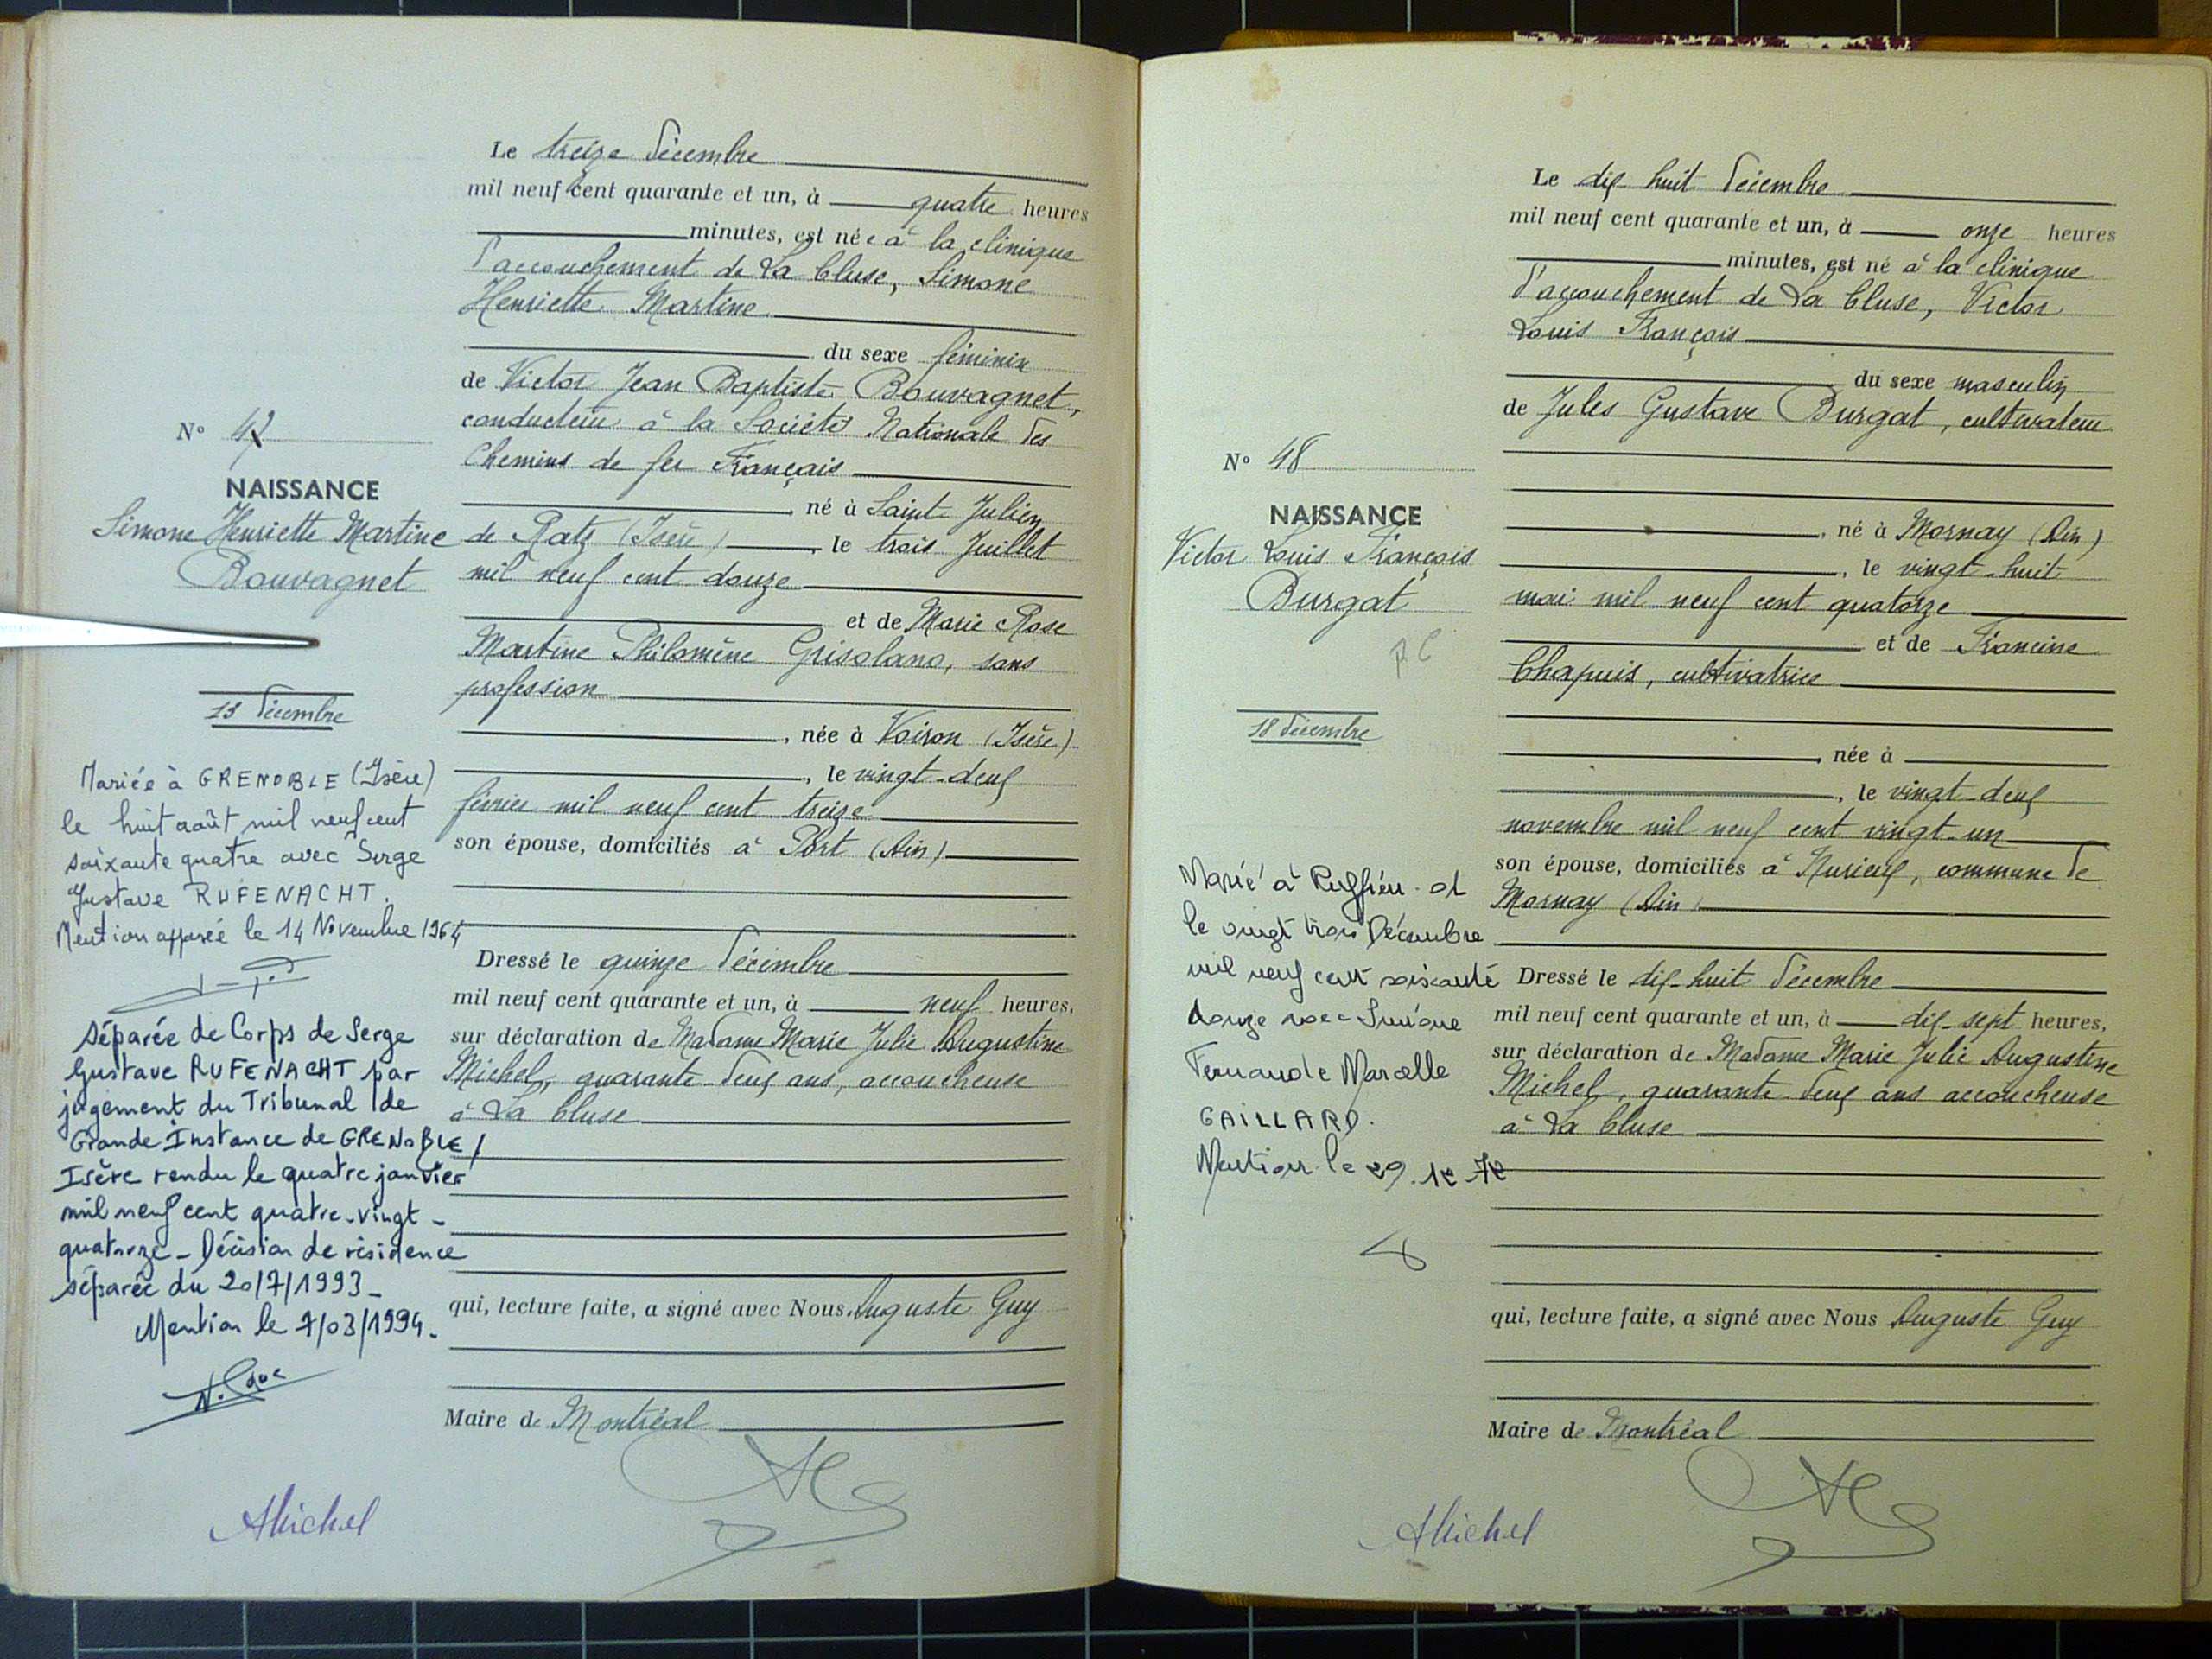 Le treize décembre
mil neuf cent quarante et un, à quatre heures
minutes, est née à la clinique
d'accouchement de La Cluse, Simone
Henriette Martine
du sexe féminin
de Victor Jean Baptiste Bouvagnet,
conducteur à la Société Nationale des
Chemins de fer Français
né à Saint Julien
de Ratz (Isère), le trois Juillet
mil neuf cent douze
et de Marie Rose
Martine Philomène Grisolano, sans
profession
, née à Voiron (Isère)
, le vingt-deux
février mil neuf cent treize
son épouse, domiciliés à Port (Ain)
Dressé le quinze décembre
mil neuf cent quarante et un, à neuf heures,
sur déclaration de Madame Marie Julie Augustine
Michel, quarante deux ans, accoucheuse
à La Cluse
qui, lecture faite, a signé avec Nous Auguste Guy
Maire de Montréal
N° 47
NAISSANCE
Simone Henriette Martine
Bouvagnet
13 décembre
Mariée à GRENOBLE (Isère)
le huit août mil neuf cent
soixante quatre avec Serge
Gustave RUFENACHT.
Mention apposée le 14 Novembre 1964
Séparée de Corps de Serge
Gustave RUFENACHT par
jugement du Tribunal de
Grande Instance de GRENOBLE /
Isère rendu le quatre janvier
mil neuf cent quatre-vingt-
quatorze - Décision de résidence
séparée du 20/7/1993-
Mention le 7/03/1994.
AMichel
Le dix huit décembre
mil neuf cent quarante et un, à onze heures
minutes, est né à la clinique
d'accouchement de La Cluse, Victor
Louis François
du sexe masculin
de Jules Gustave Burgat, cultivateur
, né à Mornay (Ain)
, le vingt-huit
mai mil neuf cent quatorze
et de Francine
Chapuis, cultivatrice
, née à
, le vingt-deux
novembre mil neuf cent vingt-un
son épouse, domiciliés à Nurieux, commune de
Mornay (Ain)
Dressé le dix-huit décembre
mil neuf cent quarante et un, à dix-sept heures,
sur déclaration de Madame Marie Julie Augustine
Michel, quarante deux ans accoucheuse
à La Cluse
qui, lecture faite, a signé avec Nous Auguste Guy
Maire de Montréal
N° 48
NAISSANCE
Victor Louis François
Burgat
p. C
18 décembre
Marié à Ruffieu 01
le vingt trois Décembre
mil neuf cent soixante
douze avec Simone
Fernande Marcelle
GAILLARD.
Mention le 29.12.72
AMichel